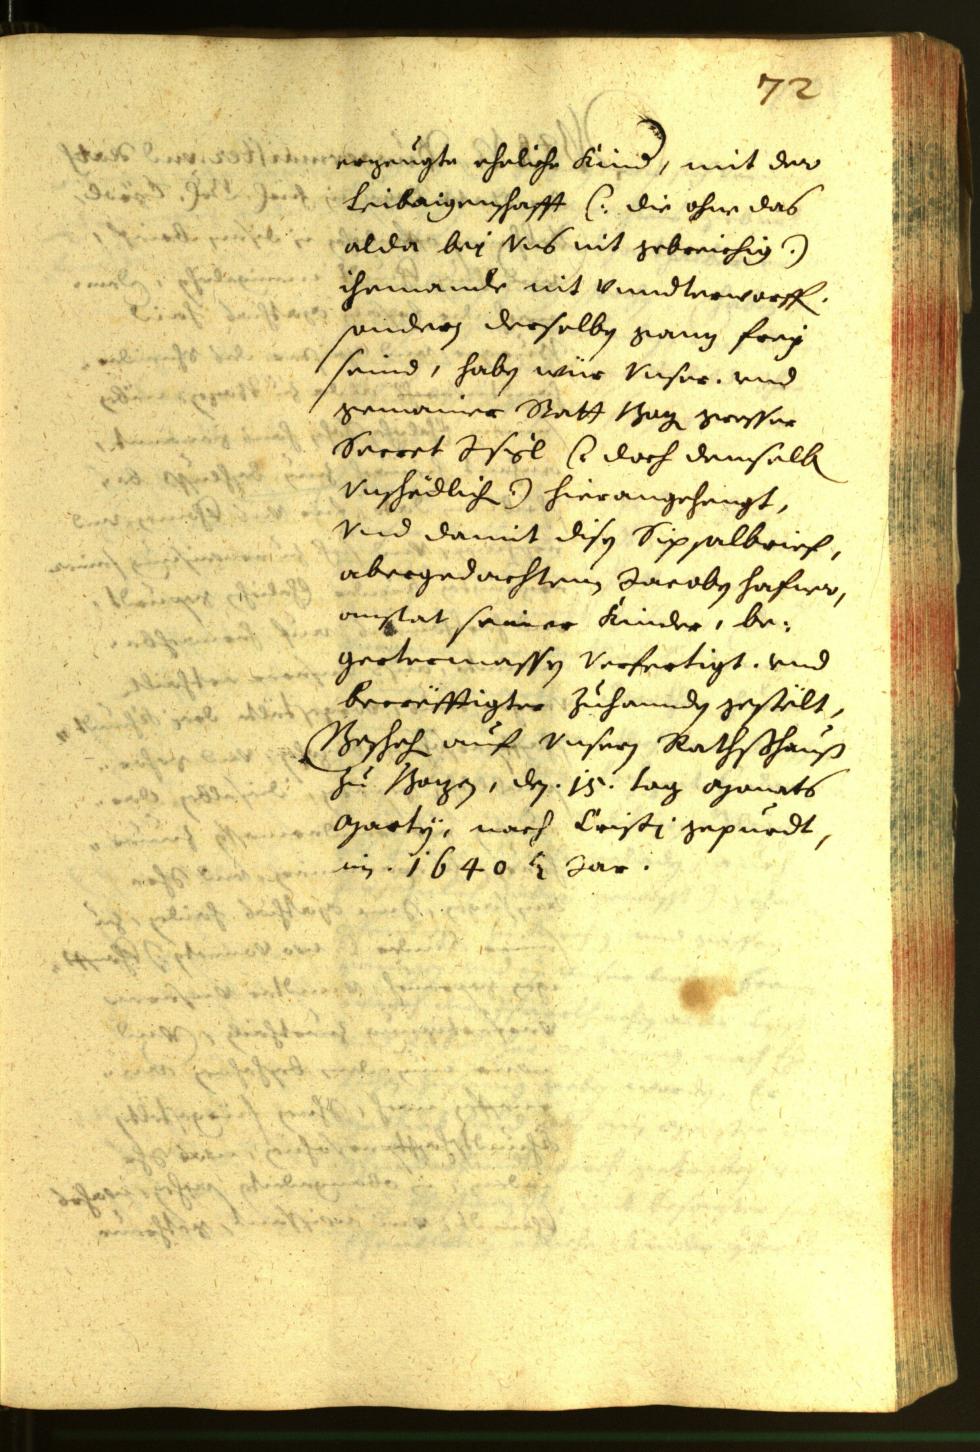 72
erzeugte eheliche Kind, mit der
Leibaigenschafft (: die ohne das
alda bej Vns nit gebreichig :)
jhemande nit Vnndterworff.
sondern derselben ganz frej
seind, haben wür Vnser. vnd
gemainer Statt Bozen grosser
Secret Jnsigl (: doch demselben
Vnschedlich :) hierangehengt,
Vnd damit disen Sipsalbrief,
abergedachtem Jacoben hafner,
anstat seiner Kinder, be:
gertermassen Verfertigt. vnd
becrefftigter Zuhannden gestelt,
Beschehen auf Vnserm Rathßhauß
Zu Bozen, den. 15. tag Monats
Marty, nach Cristj gepurdt,
im. 1640 Jar.